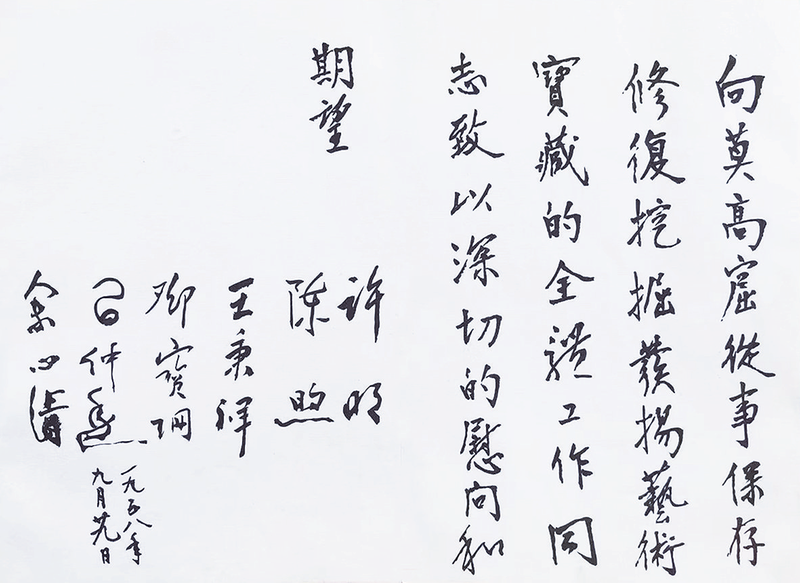 向莫高窟從事保存
修復挖掘發揚藝術
寶藏的全體工作同
志致以深切的慰问和
期望
许明
陈煦
王秉祥
鄧寶珊
余心清
一九五八年
九月廿九日